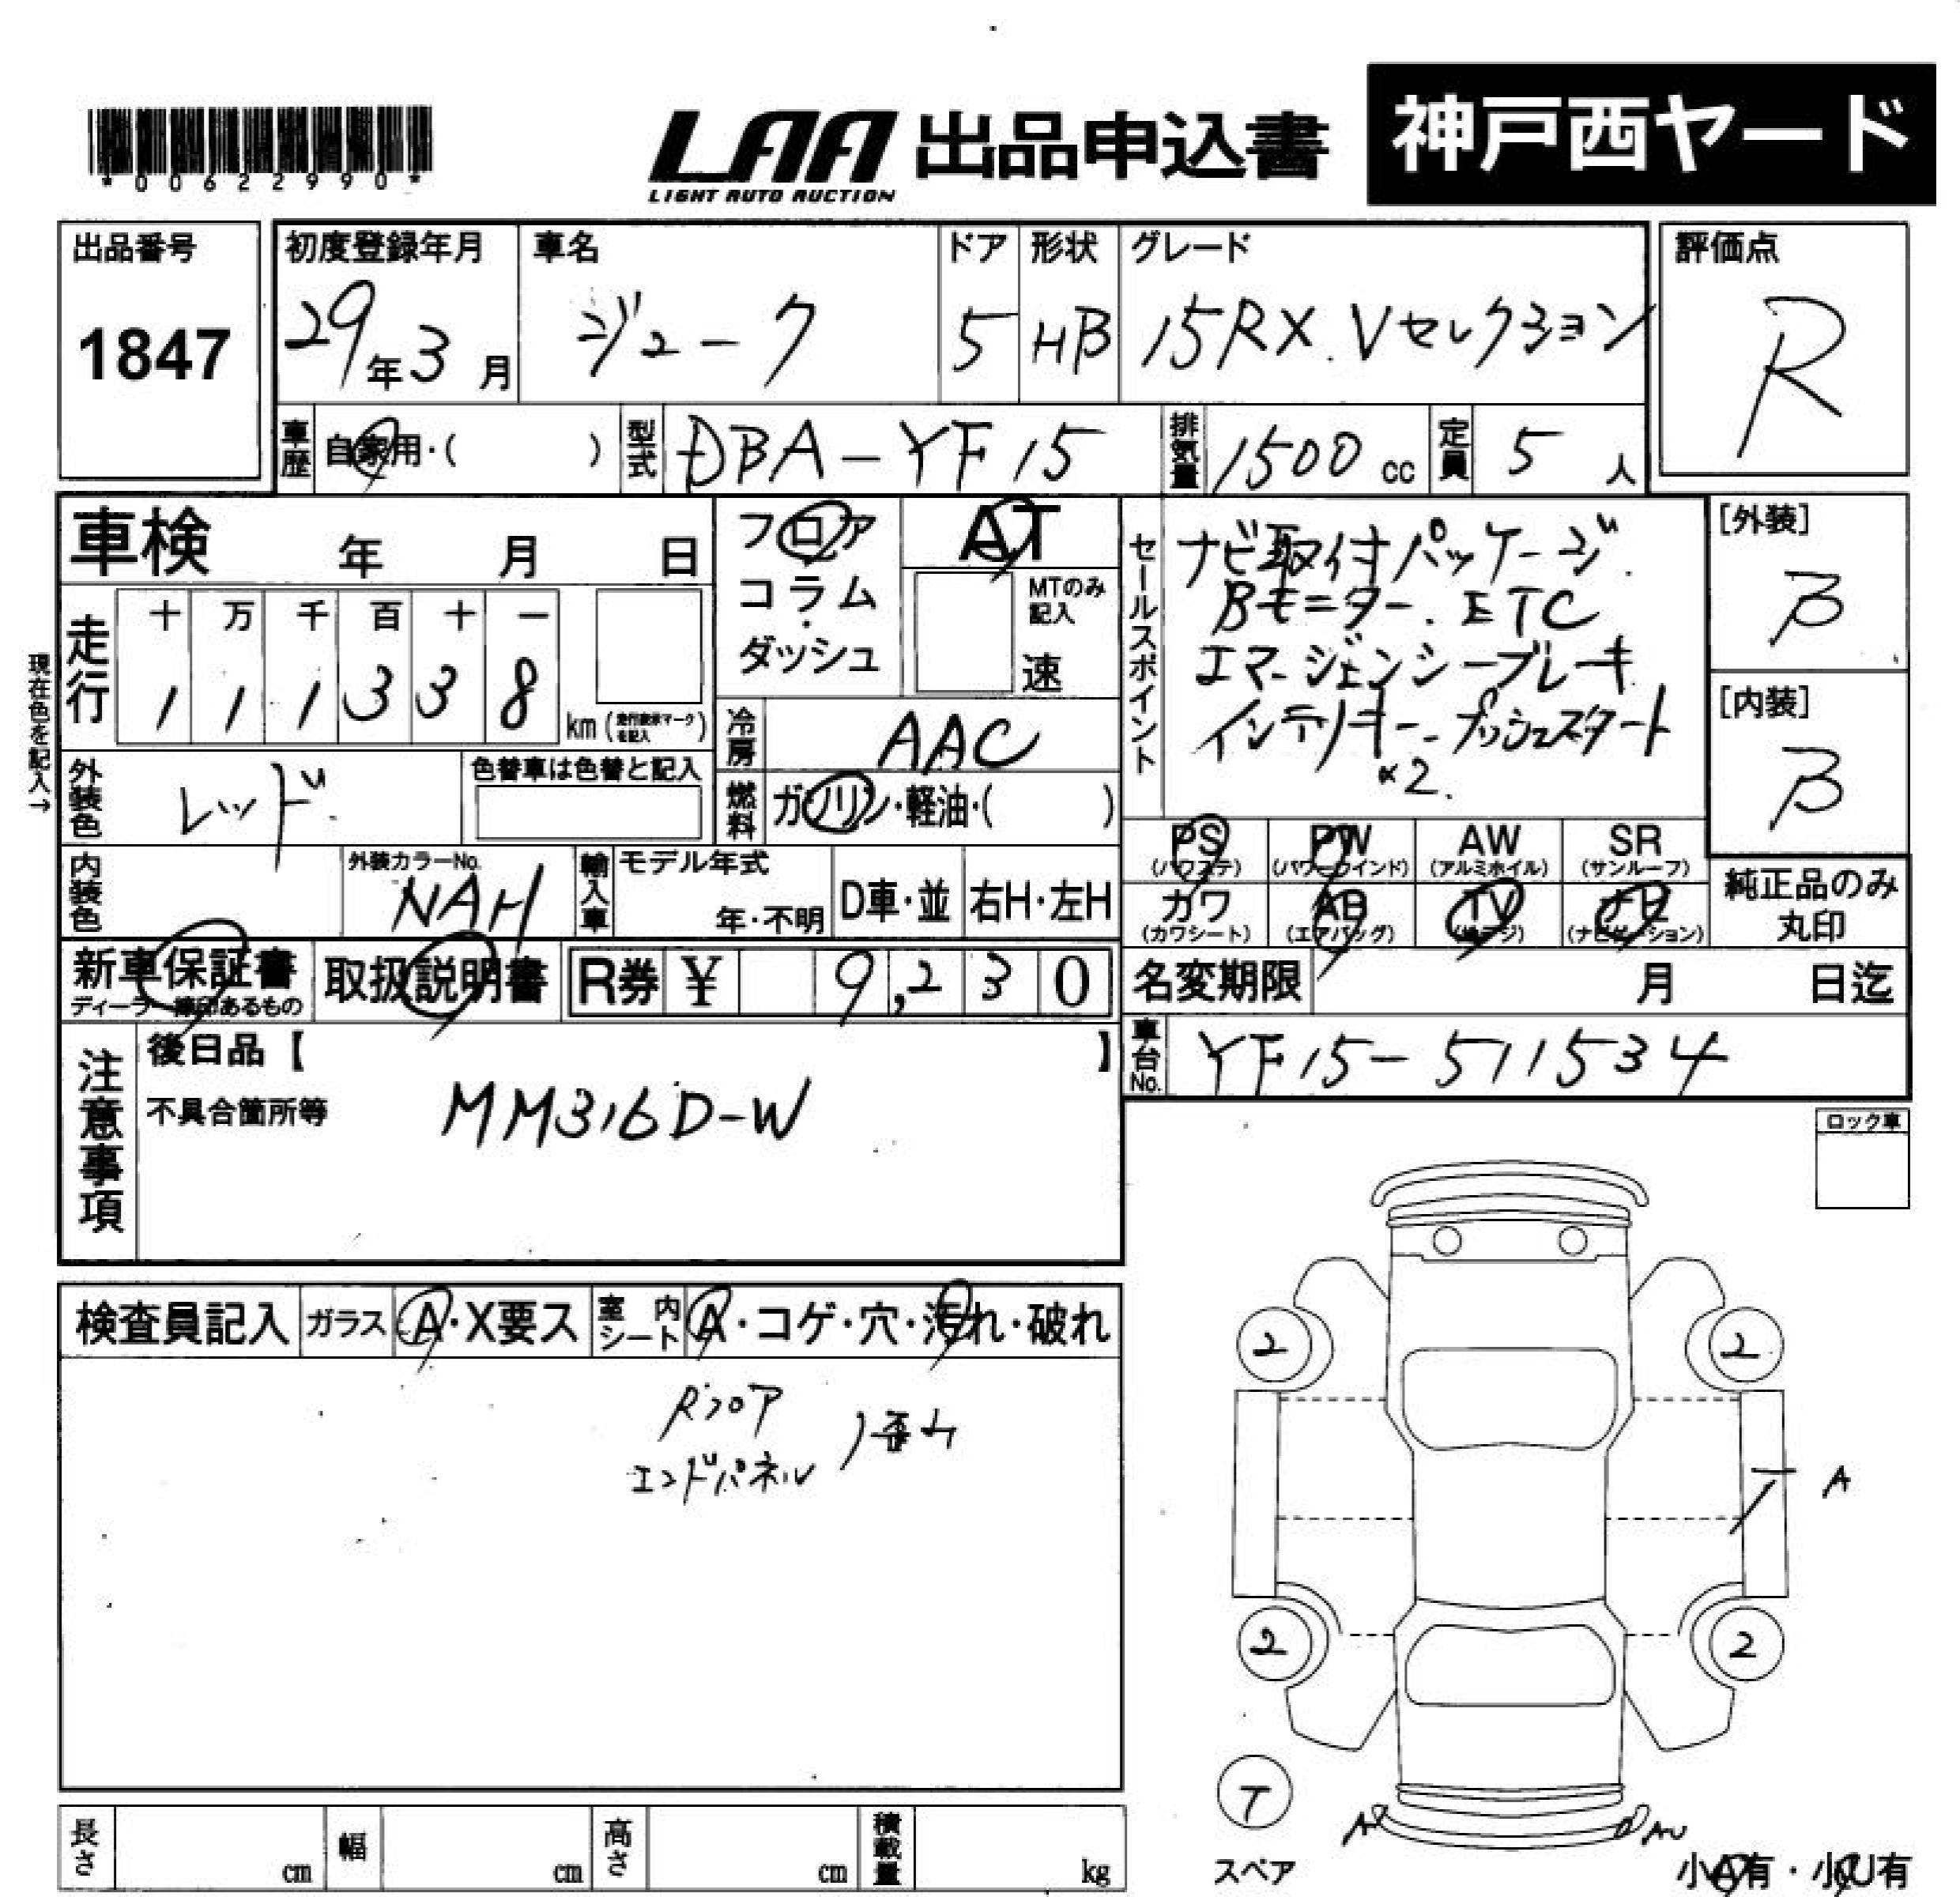 *00622990*
LAA 出品申込書 神戸西ヤード
LIGHT AUTO AUCTION
出品番号 1847
初度登録年月 29年3月
車名 ジューク
ドア 5
形状 HB
グレード 15RX.Vセレクション
評価点 R
車歴 自家用・( )
型式 DBA-YF15
排気量 1500cc
定員 5人
車検 年 月 日
フロア
コラム
・
ダッシュ
AT
MTのみ記入
速
セールスポイント
ナビ取付パッケージ.
Bモニター.ETC
エマージェンシーブレーキ
インテリキー.プッシュスタート
×2.
[外装] B
[内装] B
現在色を記入→
走行 十 万 千 百 十 一
1 1 1 3 3 8 km (走行表示マークを記入)
冷房 AAC
外装色 レッド
色替車は色替と記入
燃料 ガソリン・軽油・( )
PS (パワステ)
PW (パワーウインド)
AW (アルミホイル)
SR (サンルーフ)
カワ (カワシート)
AB (エアバッグ)
TV (地デジ)
ナビ (ナビゲーション)
純正品のみ
丸印
内装色
外装カラーNo. NAH
輸入車
モデル年式
年・不明
D車・並
右H・左H
新車保証書
ディーラー捺印あるもの
取扱説明書
R券 ¥ 9,230
名変期限 月 日迄
車台No. YF15-511534
注意事項
後日品【 】
不具合箇所等 MM316D-W
ロック車
検査員記入
ガラス A・X要ス
室内シート A・コゲ・穴・汚れ・破れ
Rフロア
エンドパネル
歪み
2 2
A
2 2
T
スペア
A
AU
小A有・小U有
長さ cm
幅 cm
高さ cm
積載量 kg